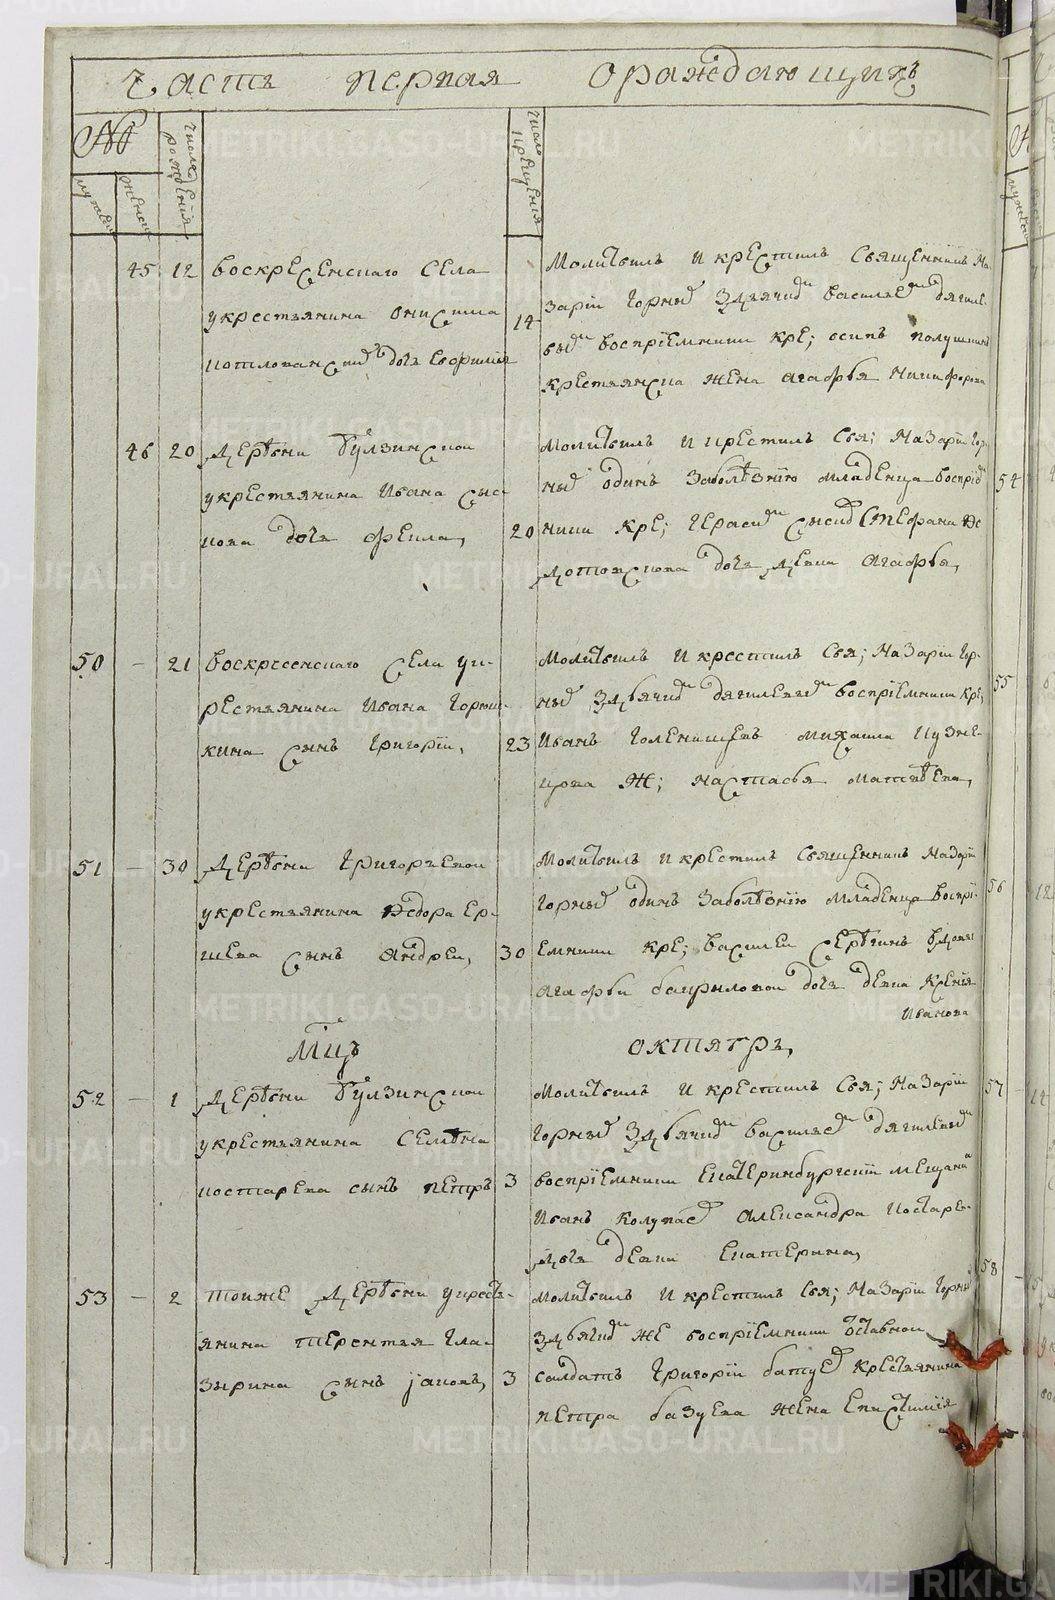 Часть первая ораждающихъ
№
мужеска
женска
число рождения
число крещения
45 12 воскресенскаго села
укрестьянина онисима
дочь евфимия
14
Молитвилъ и крестилъ священникъ На
зарiй Горныхъ здьячкомъ василье
воспрiемники кре; осипъ
крестьянска жена агафья Никифорова
46 20 деревни
укрестьянина Ивана сыс
кова дочь фекла,
20
молитвилъ и крестилъ свя; Назарiй Гор
ныхъ одинъ заболезнiю младенца воспрiем
ники кре; Герасимъ Стефана
дочь девка агафья,
50 – 21 воскресенскаго села ук
рестьянина Ивана Горюш
кина сынъ григорiй,
23
Молитвилъ и крестилъ свя; Назарiй Гор
ныхъ здьячкомъ воспрiемники кре;
Иванъ Голенищевъ михаила кузне
цова ж; настасья матвеева,
51 – 30 деревни Григорьевой
укрестьянина Федора Ер
шева сынъ андрей,
30
Молитвилъ и крестилъ священникъ Назарiй
Горныхъ одинъ заболезнiю младенца воспрi
емники кре; василей вдовы
агафьи дочь девка Ксенiя
Иванова
Мцъ октябрь,
52 – 1 деревни
укрестьянина семена
костарева сынъ петръ
3
Молитвилъ и крестилъ свя; Назарiй
Горныхъ здьячкомъ василье
воспрiемники екатеринбургскiй мещанинъ
Иванъ александра костаре
ва дочь девка екатерина,
53 – 2 тояже деревни укресть
янина терентья гла
зырина сынъ iаковъ,
3
молитвилъ и крестилъ свя; Назарiй Горныхъ
здьячкомъ же воспрiемники отставной
солдатъ григорiй крестьянина
петра базуева жена епистимiя
54
55
56
57
58
METRIKI.GASO-URAL.RU